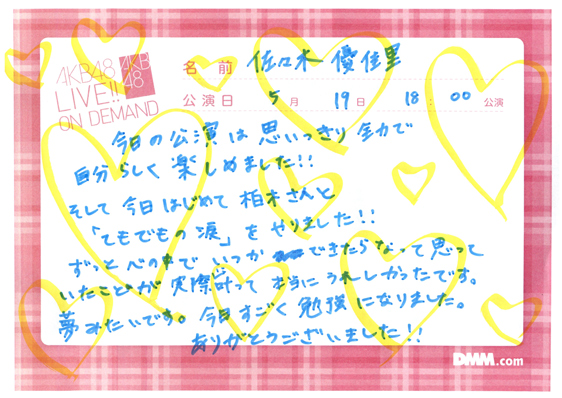 AKB48
LIVE!!
ON DEMAND
AKB
48
名前 佐々木優佳里
公演日 5月 19日 18:00 公演
今日の公演は思いっきり全力で
自分らしく楽しめました!!
そして今日はじめて柏木さんと
「てもでもの涙」をやりました!!
ずっと心の中でいつかできたらなって思って
いたことが実際叶って本当にうれしかったです。
夢みたいです。今日すごく勉強になりました。
ありがとうございました!!
DMM.com